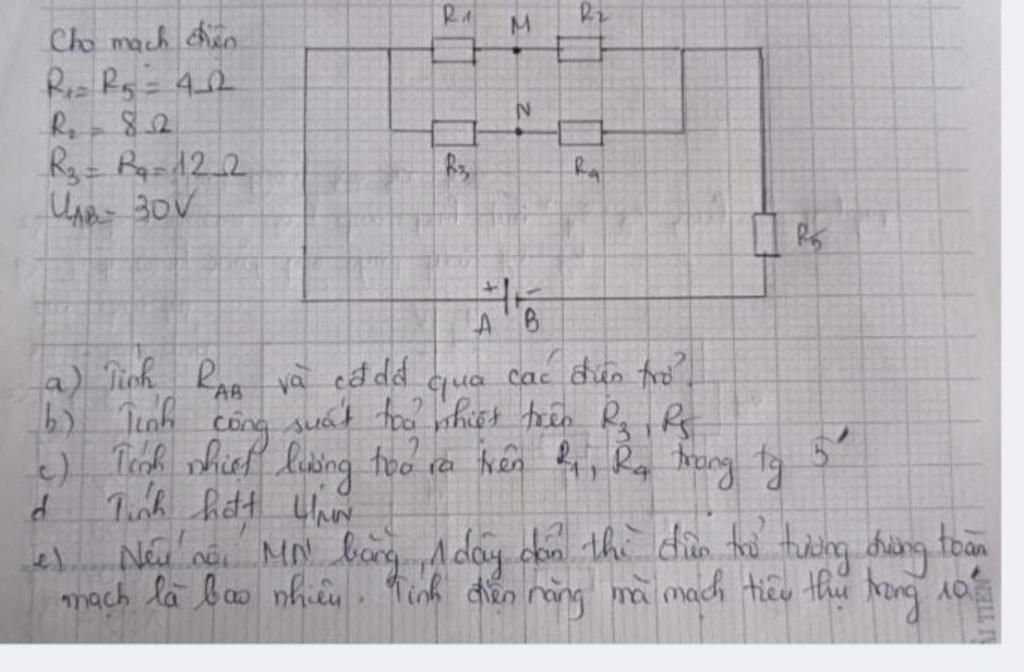 Cho mạch điện
R₁ = R₅ = 4Ω
R₂ = 8Ω
R₃ = R₄ = 12Ω
U_AB = 30V
R₁ M R₂
N
R₃ R₄
R₅
+ -
A B
a) Tính R_AB và cđdđ qua các điện trở.
b) Tính công suất toả nhiệt trên R₃, R₅
c) Tính nhiệt lượng toả ra trên R₁, R₄ trong tg 5'
d Tính hđt U_MN
e) Nếu nối MN bằng 1 dây dẫn thì điện trở tương đương toàn
mạch là bao nhiêu. Tính điện năng mà mạch tiêu thụ trong 10'